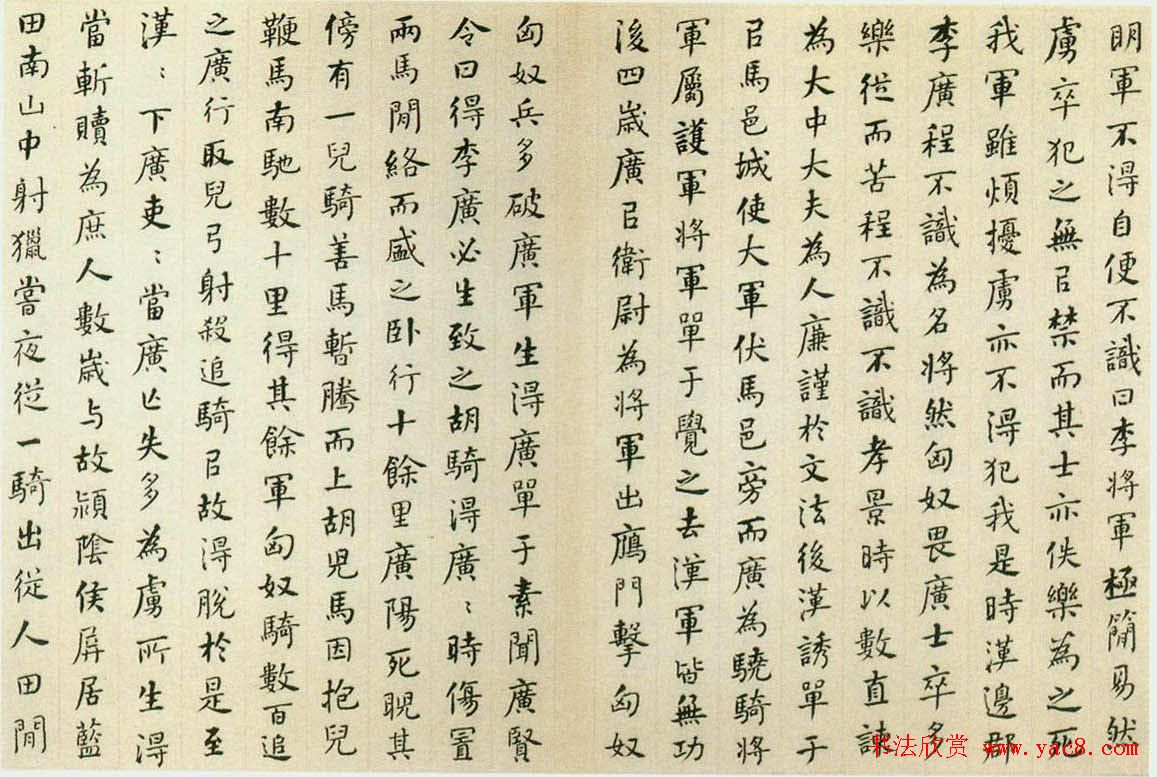 明軍不得自便不識曰李將軍極簡易然
虜卒犯之無㠯禁而其士亦佚樂為之死
我軍雖煩擾虜亦不得犯我是時漢邊郡
李廣程不識為名將然匈奴畏廣士卒多
樂從而苦程不識不識孝景時以數直諫
為大中大夫為人廉謹於文法後漢誘單于
㠯馬邑城使大軍伏馬邑旁而廣為驍騎將
軍屬護軍將軍單于覺之去漢軍皆無功
後四歲廣㠯衛尉為將軍出鴈門擊匈奴
匈奴兵多破廣軍生得廣單于素聞廣賢
令曰得李廣必生致之胡騎得廣〻時傷置
兩馬間絡而盛之卧行十餘里廣陽死睨其
傍有一兒騎善馬暫騰而上胡兒馬因抱兒
鞭馬南馳數十里得其餘軍匈奴騎數百追
之廣行取兒弓射殺追騎㠯故得脫於是至
漢〻下廣吏〻當廣亡失多為虜所生得
當斬贖為庶人數歲与故潁陰侯屏居藍
田南山中射獵嘗夜從一騎出從人田間
书法欣赏 www.yac8.com